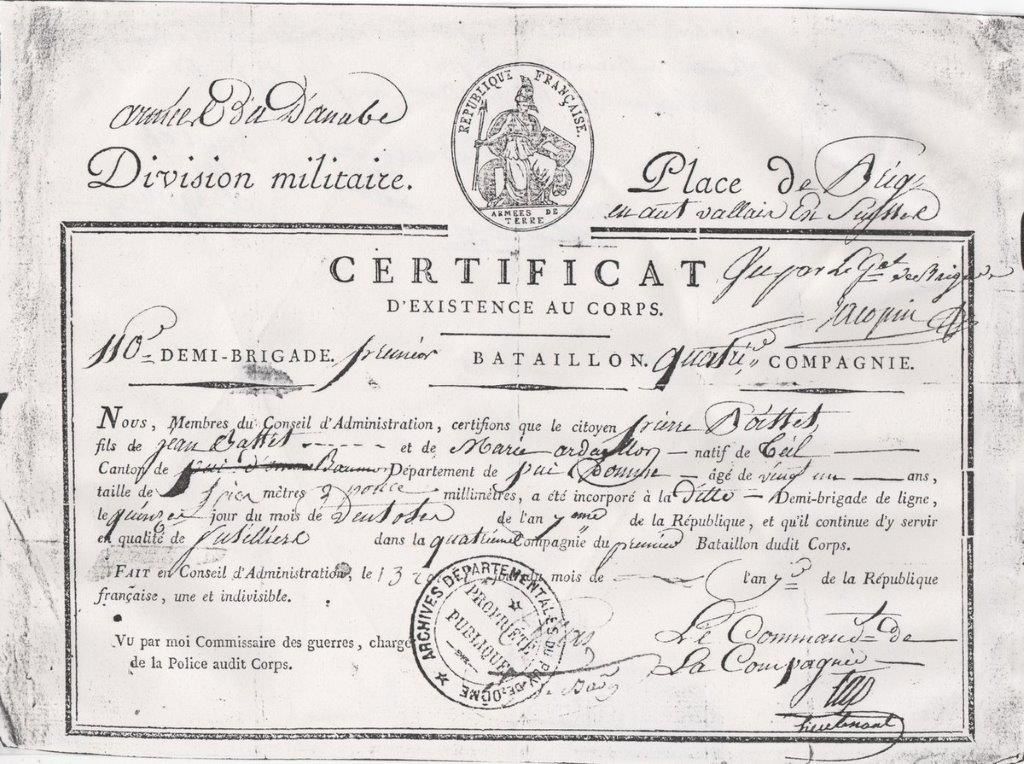 RÉPUBLIQUE FRANÇAISE.
ARMÉES DE TERRE
armée Du Danube
Division militaire.
Place de Brigs
en aut vallais En Suysse
CERTIFICAT
D'EXISTENCE AU CORPS.
Vu par Le Gal de Brigade
Jacopin
110e DEMI-BRIGADE. premier BATAILLON. quatrie COMPAGNIE.
Nous, Membres du Conseil d'Administration, certifions que le citoyen pierre
fils de jean et de Marie ardaillon natif de
Canton de Département de pui Domme âgé de vingt un ans,
taille de mètres pouce millimètres, a été incorporé à la Ditte Demi-brigade de ligne,
le quinze jour du mois de Ventose de l'an 7eme de la République, et qu'il continue d'y servir
en qualité de fusillier dans la quatrieme Compagnie du premier Bataillon dudit Corps.
Fait en Conseil d'Administration, le 13 jour du mois de l'an 7e de la République
française, une et indivisible.
Vu par moi Commissaire des guerres, chargé
de la Police audit Corps.
Le Commandt de
La Compagnie
lieutenant
ARCHIVES DÉPARTEMENTALES DU PUY-DE-DÔME
PROPRIÉTÉ PUBLIQUE